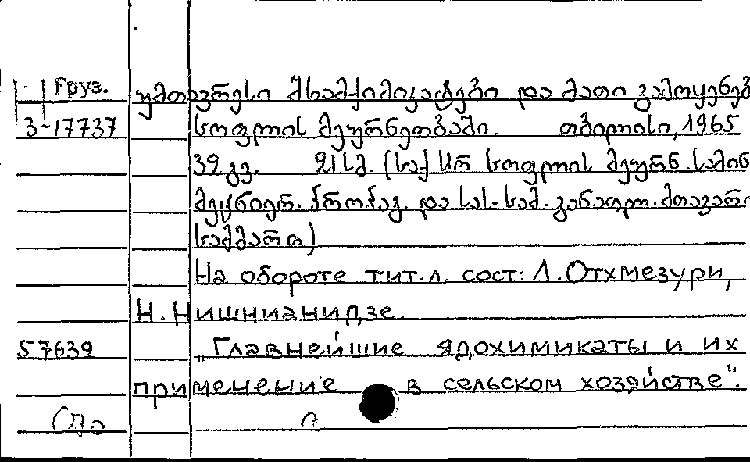 Груз. უმთავრესი შხამქიმიკატები და მათი გამოყენებ
3-17737 სოფლის მეურნეობაში. თბილისი, 1965
32 გვ. 21 სმ. (საქ. სსრ სოფლის მეურნ. სამინ
მეცნიერ. პროპაგ. და სას.-სამ. განათლ. მთავარი
სამმართ.)
На обороте тит. л. сост: Л. Отхмезури,
Н. Нишнианидзе.
57639 „Главнейшие ядохимикаты и их
применение в сельском хозяйстве".